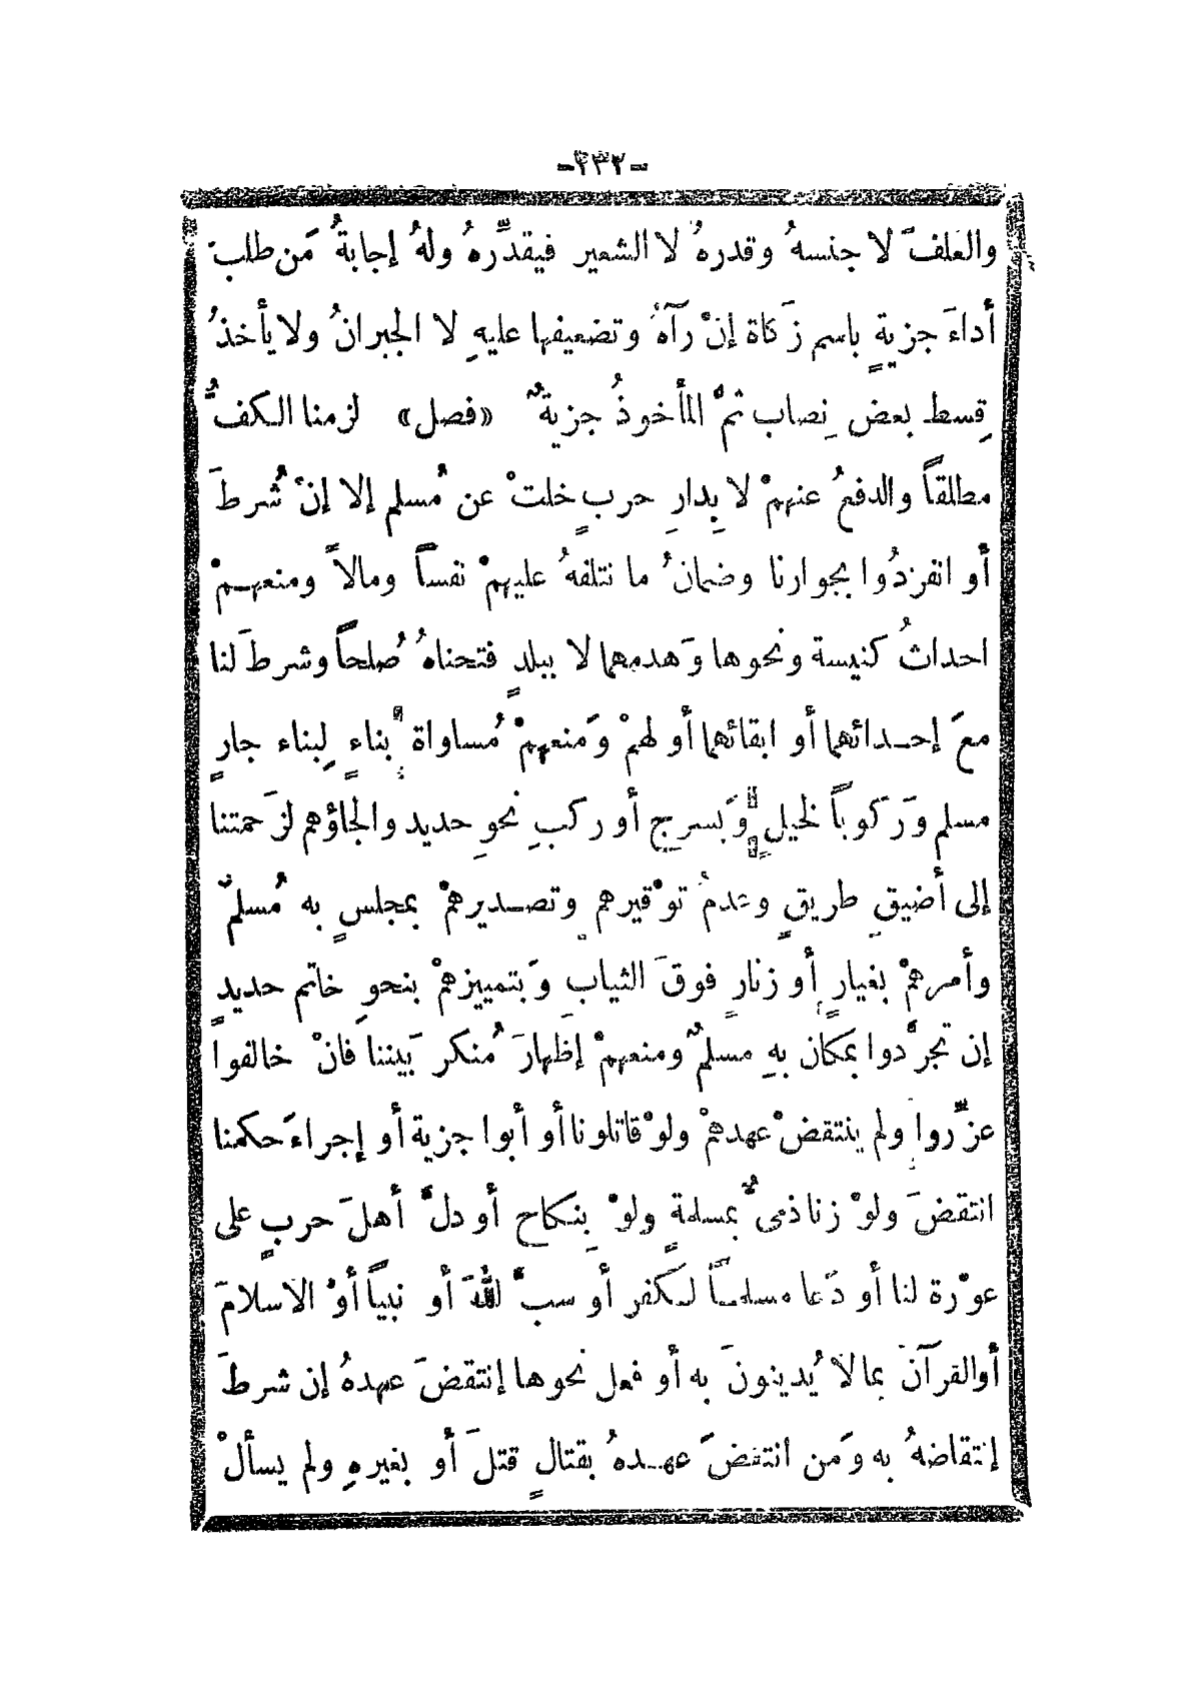 -٢٣٢-
والعلفَ لا جنسهُ وقدرهُ لا الشعير فيقدِّرهُ ولهُ إجابةُ مَن طلبَ
أداءَ جزيةٍ باسم زَكاة إنْ رآهُ وتضعيفها عليهِ لا الجبرانُ ولا يأخذُ
قِسط بعض نِصاب ثمَّ المأخوذُ جزيةٌ «فصل» لزمنا الكفُّ
مطلقاً والدفعُ عنهمْ لا بِدارِ حربٍ خلتْ عن مُسلم إلا إنْ شُرطَ
أو انفردُوا بجوارنا وضمانُ ما نتلفهُ عليهمْ نفساً ومالاً ومنعهمْ
احداثُ كنيسة ونحوها وَهدمهما لا ببلدٍ فتحناهُ صُلحاً وشرطَ لنا
معَ إحدائهما أو ابقائهما أو لهمْ وَمنعهمْ مُساواة بناءٍ لِبناء جارٍ
مسلم وَرَكوباً لخيلٍ وَبسرج أو ركبِ نحوِ حديد والجاؤهم لزَحمتنا
إلى أضيقِ طريقٍ وعدمُ توْقيرهم وتصديرهمْ بمجلسٍ به مُسلمٌ
وأمرهمْ بغيارٍ أو زنارٍ فوقَ الثيابِ وَبتمييزهمْ بنحوِ خاتم حديدٍ
إن تجرَّدوا بمكان بهِ مسلمٌ ومنعهمْ إظهارَ مُنكر بَيننا فانْ خالفوا
عزِّروا ولم ينتقضْ عهدهمْ ولوْ قاتلونا أو أبوا جزية أو إجراءَ حكمنا
انتقضَ ولوْ زنا ذمىٌّ بمسلمةٍ ولوْ بِنكاح أو دلَّ أهلَ حربٍ على
عوْرة لنا أو دَعا مسلماً لكفر أو سبَّ للّٰهَ أو نبياً أوْ الاسلامَ
أوالقرآنَ بمالاَ يُدينونَ به أو فعل نحوها إنتقضَ عهدهُ إن شرطَ
إنتقاضهُ به وَمَن انتقضَ عهدهُ بقتالٍ قتلَ أو بغيرهِ ولم يسألْ